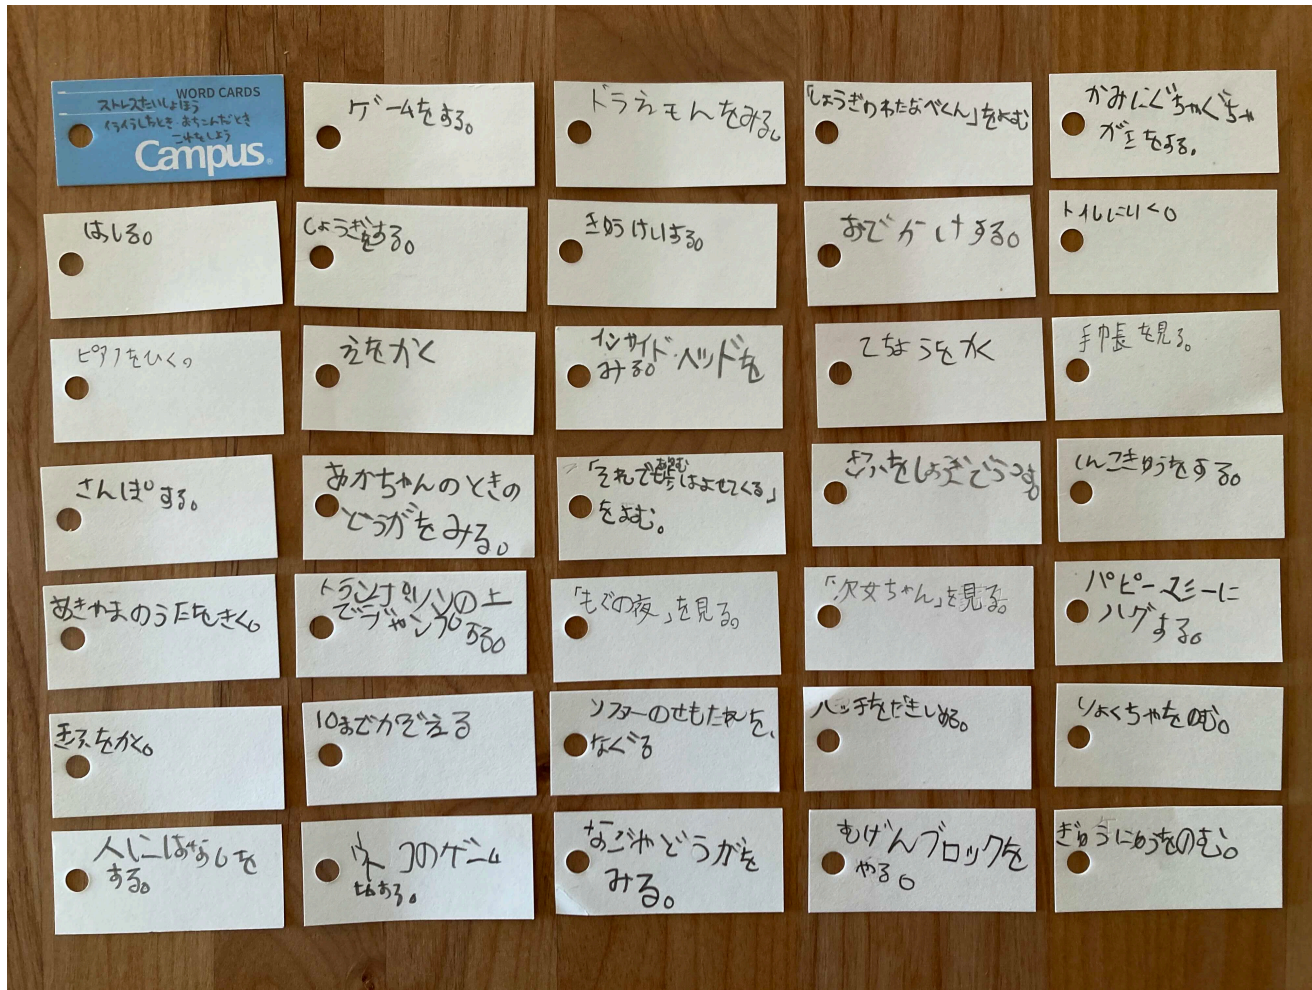 WORD CARDS
ストレスたいしょほう
イライラしたとき・おちこんだとき
これをしよう
Campus
ゲームをする。
ドラえもんをみる。
「しょうぎのわたなべくん」をよむ
かみにぐちゃぐちゃ
がきをする。
はしる。
しょうぎをする。
きゅうけいする。
おでかけする。
トイレにいく。
ピアノをひく。
えをかく
インサイド・ヘッドを
みる。
てちょうをかく
手帳を見る。
さんぽする。
あかちゃんのときの
どうがをみる。
「それでも歩はよせてくる」
あゆむ
をよむ。
きふをしょうぎでうつす。
しんこきゅうをする。
あきやまのうたをきく。
トランポリンの上
でジャンプ
する。
「もぐの夜」を見る。
「次女ちゃん」を見る。
パピーマミーに
ハグ
する。
きふをかく。
10までかぞえる
ソファーのせもたれを、
なぐる
ハッチをだきしめる。
りょくちゃをのむ。
人にはなしを
する。
ネコのゲーム
する。
なごやどうがを
みる。
むげんブロックを
やる。
ぎゅうにゅうをのむ。